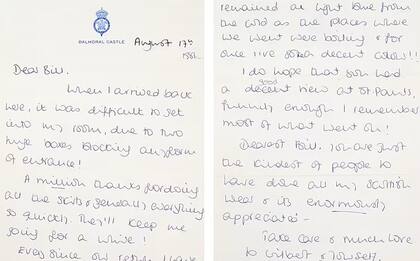 BALMORAL CASTLE
August 17th
1981.
Dear Bill,
When I arrived back
here, it was difficult to get
into my room, due to two
huge boxes blocking any form
of entrance!
A million thanks for doing
all the skirts & generally everything
so quickly. They'll keep me
going for a while!
Ever since our return I have
remained a light blue from
the cold as the places where
we went were boiling & for
once I've got a decent colour!!!
I do hope that you had
a decent good view at St Pauls,
funnily enough I remember
most of what went on!
Dearest Bill, you are just
the kindest of people to
have done all my
wear & its enormously
appreciated -
Take care & much love
to & yourself,